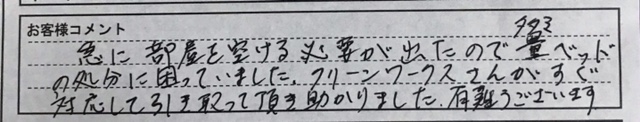 お客様コメント
急に部屋を空ける必要が出たので畳ベッド
タタミ
の処分に困っていました。クリーンワークスさんがすぐ
対応して引き取って頂き助かりました。有難うございます